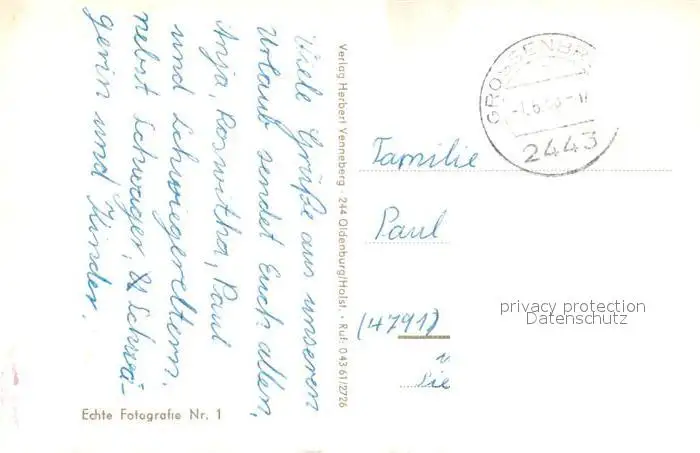 Viele Grüße aus unserem
Urlaub sendet Euch allen,
Anja, Roswitha, Paul
und Schwiegereltern,
nebst Schwager, & Schwä-
gerin und Kinder.
Echte Fotografie Nr. 1
Verlag Herbert Venneberg · 244 Oldenburg/Holst. · Ruf: 04361/2726
GROSSENBR
2443
Familie
Paul
(4791)
privacy protection
Datenschutz